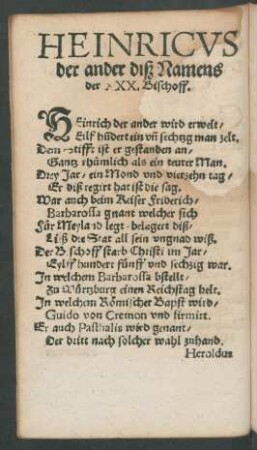 HEINRICVS
der ander diß Namens
der XXX. Bischoff.
HEinrich der ander wird erwelt/
Eilff hūdert ein vn̄ sechtzig man zelt.
Dem Stifft ist er gestanden an/
Gantz rhümlich als ein teurer Man.
Drey Jar/ ein Mond vnd viertzehn tag/
Er diß regirt hat ist die sag.
War auch beim Keiser Friderich/
Barbarossa gnant welcher sich
Für Meyland legt/ belagert diß/
Ließ die Stat all sein vngnad wiß.
Der Bischoff starb Christi im Jar/
Eylff hundert fünff vnd sechzig war.
In welchem Barbarossa bstellt/
Zu Würtzburg einen Reichstag helt.
In welchem Römischer Bapst wird/
Guido von Cremon vnd firmirt.
Er auch Paschalis wird genant/
Der dritt nach solcher wahl zuhand.
Heroldus